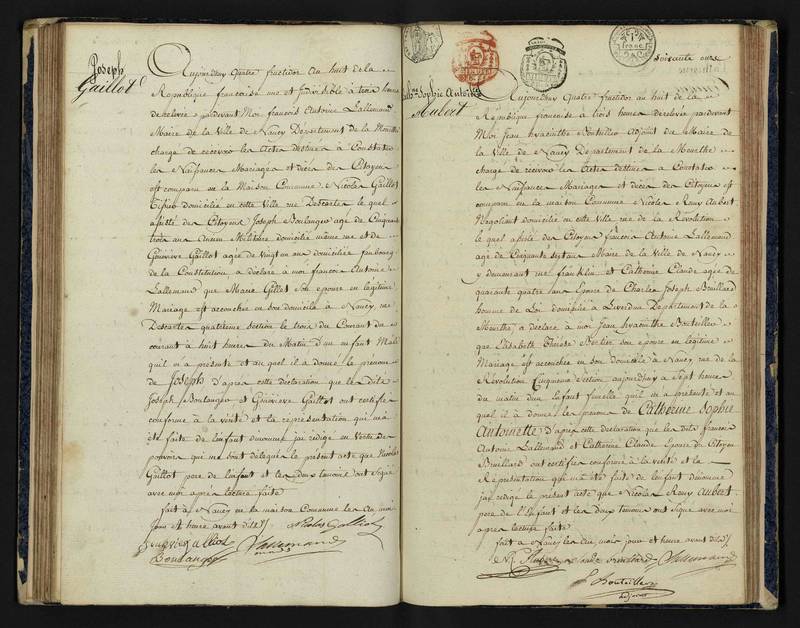 Joseph
Gaillot
Aujourdhuy Quatre fructidor au huit de la
République francaise une et indivisible à trois heures
de relevée pardevant Moi francois Antoine Lallemand
Maire de la Ville de Nancy Departement de la Meurthe
chargé de recevoir les Actes destinés à Constater
les Naissances Mariages et décès des Citoyens
est comparu en la Maison Commune Nicolas Gaillot
domicilié en cette Ville rue Descartes le quel
assisté des Citoyens Joseph Boulanger agé de Cinquante
trois ans ancien Militaire domicilié même rue et de
Geneviève Gaillot agée de vingt un ans domiciliée faubourg
de la Constitution a déclaré à moi francois Antoine
Lallemand que Marie Gillot son épouse en légitime
Mariage est accouchée en son domicile à Nancy, rue
Descartes quatrième section le trois du Courant du
courant à huit heures du Matin d'un enfant Male
qu'il m'a présenté et au quel il a donné le prénom
de Joseph d'après cette déclaration que les dits
Joseph Boulanger et Geneviève Gaillot ont certifié
conforme à la vérité et la représentation qui m'a
été faite de l'enfant dénommé jai rédigé en Vertu des
pouvoirs qui me sont délégués le présent acte que Nicolas
Gaillot père de l'enfant et les deux temoins ont signé
avec moi après lecture faite
fait à Nancy en la maison Commune les an, mois
Jour et heure avant dits
Nicolas Gaillot
Lallemand
Boulanger
soixante onze
Cath.ne Sophie Antoinette
Aubert
Aujourdhuy Quatre fructidor au huit de la
République francaise à trois heures de relevée pardevant
Moi Jean hyacinthe Bouteiller adjoint du Maire de
la Ville de Nancy Departement de la Meurthe
chargé de recevoir les Actes destinés à Constater
les Naissances Mariages et décès des Citoyens est
comparu en la maison Commune Nicolas Remy Aubert
Négociant domicilié en cette ville rue de la Révolution
le quel assisté des Citoyens francois Antoine Lallemand
agé de Cinquante sept ans Maire de la Ville de Nancy
y demeurant rue franklin et Catherine Claude agée de
quarante quatre ans Epouse de Charles Joseph Breillard
homme de Loi domiciliée à Liverdun Departement de la
Meurthe, a déclaré à moi Jean hyacinthe Bouteiller
que Elisabeth Thérèse Berlier son épouse en légitime
Mariage est accouchée en son domicile à Nancy rue de la
Révolution Cinquieme Section aujourdhuy à Sept heures
du matin d'un Enfant femelle qu'il m'a présenté et au
quel il a donné les prenoms de Catherine Sophie
Antoinette d'après cette déclaration que les dits francois
Antoine Lallemand et Catherine Claude Epouse du Citoyen
Breillard ont certifiée conforme à la vérité et la
Représentation qui m'a été faite de l'enfant dénommé
jai rédigé le présent acte que Nicolas Remy Aubert
père de l'Enfant et les deux temoins ont signé avec moi
après lecture faite
fait à Nancy les an mois jour et heure avant dits
Lallemand
Bouteiller
adjoint